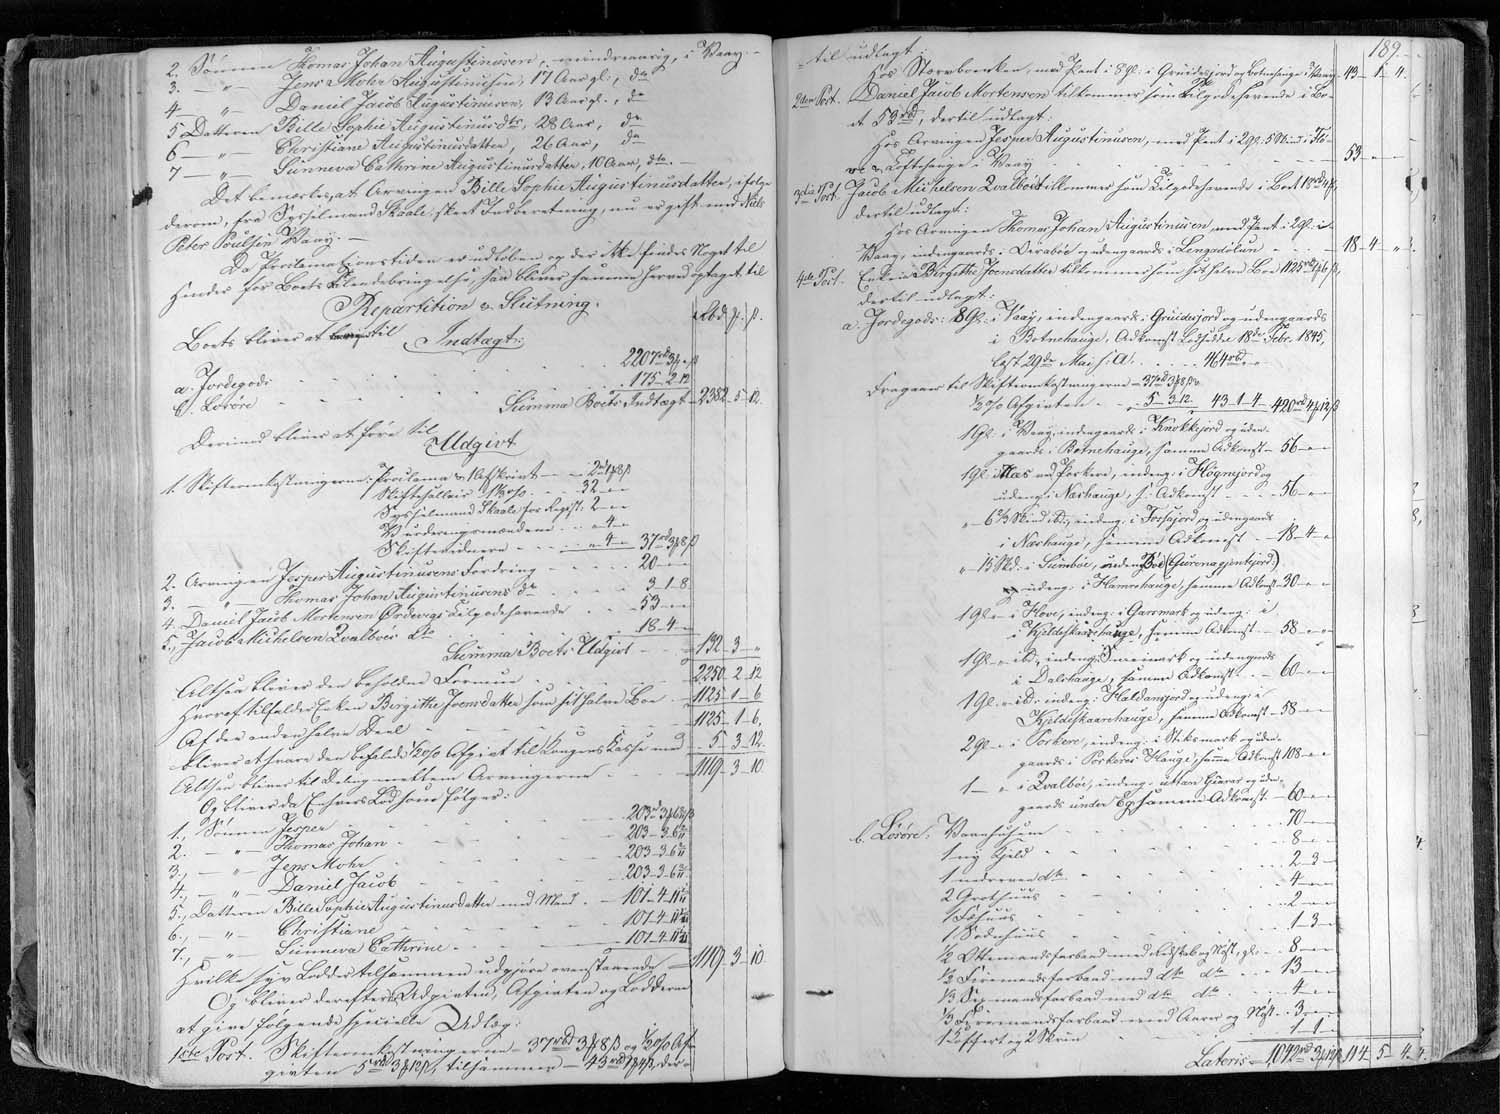 2. Sønnen Thomas Johan Augustinusen, mindreaarig, i Vaag.
3. — " — Jens Mohr Augustinusen, 17 Aar gl., do
4 — " — Daniel Jacob Augustinusen, 13 Aar gl., do
5 Datteren Bille Sophie Augustinusdtr, 28 Aar, do
6 — " — Christiane Augustinusdatter, 26 Aar, do
7 — " — Sunneva Cathrine Augustinusdatter, 10 Aar, do. —
Det bemærkes, at Arvingen Bille Sophie Augustinusdatter, ifølge
derom, fra Sysselmand Skaale, skeet Indberetning, nu er gift med Niels
Peter Poulsen Vaag. —
Da Proclamationstiden er udløben og der ikke findes Noget til
Hinder for Boets Tilendebringelse, saa bliver samme herved optaget til
Repartition & Slutning.
Boets bliver at til Indtægt: Rbd. ₻. ß.
a. Jordegods . . . 2207 rd 3 ₻ " ß
b. Løsøre . . . 175 - 2 - 12
Summa Boets Indtægt — 2382 - 5 - 12.
Derimod bliver at føre til
Udgivt
1. Skifteomkostningerne: Proclama & Refskrivt — 2 rd 1 ₻ 8 ß
Skiftesallair 1⅓ o/o . . . 32 — " —
Sysselmand Skaale for Regist: 2 — " —
Vurderingsmændene . . " — 4 —
Skiftevidnerne . . . " — 4 — 37 rd 3 ₻ 8 ß
2. Arvingen Jesper Augustinusens Fordring . . 20 — " —
3. — " — Thomas Johan Augustinusens do . . 3 - 1 - 8
4. Daniel Jacob Mortensen Ørdevigs Tilgodehavende . . . 53 — " —
5., Jacob Michelsen Qvalbøes do . . . 18 - 4 —
Summa Boets Udgivt . . — 132 - 3 - "
Altsaa bliver den beholdne Formue . . . 2250 - 2 - 12
Hvoraf tilfalder Enken Birgithe Joensdatter som sit halve Boe — 1125 - 1 - 6
Af den anden halve Deel . . . — 1125 - 1 - 6,
bliver at svare den befalede ½ o/o Afgivt til Kongens Kasse med . 5 - 3 - 12
Altsaa bliver til Deling mellem Arvingerne . . . — 1119 - 3 - 10
Og bliver da Enhvers Lod som følger:
1., Sønnen Jesper . . . 203 rd 3 ₻ 6 2/11 ß
2. — " — Thomas Johan . . . 203 - 3 - 6 2/11
3., — " — Jens Mohr . . . 203 - 3 - 6 2/11
4., — " — Daniel Jacob . . . 203 - 3 - 6 2/11
5., Datteren Bille Sophie Augustinusdatter med Mand . — 101 - 4 - 11 1/11
6., — " — Christiane . . . 101 - 4 - 11 1/11
7., — " — Sunneva Cathrine . . . 101 - 4 - 11 1/11
Hvilke syv Lodder tilsammen udgjøre ovenstaaende — 1119 - 3 - 10
Og bliver derefter Udgivten, Afgivten og Lodderne
at give følgende specielle Udlæg:
1ste Post. Skifteomkostningerne — 37 rbd 3 ₻ 8 ß og ½ o/o Af-
givten 5 rbd 3 ₻ 12 ß, tilsammen — 43 rbd 1 ₻ 4 ß, der-
189.
til udlagt:
Hos Stervboenken, med Pant i 8 Gl. i Gruidesjord og Botnehauge i Vaag — 43 - 1 - 4.
2den Post. Daniel Jacob Mortensen tilkommer som Tilgodehavende i Bo-
et 53 rbd, dertil udlagt:
Hos Arvingen Jesper Augustinusen, med Pant i 2 Gl.
Loftshauge i Vaag . . . — 53 — " —
3die Post. Jacob Michelsen Qvalbøe tilkommer som Tilgodehavende i Boet 18 rd 4 ₻,
dertil udlagt:
Hos Arvingen Thomas Johan Augustinusen, med Pant i 2 Gl. i
Vaag, indengaards i Verabøe & udengaards i Lengsdølun . . . — 18 - 4 - "
4de Post. Enken Birgithe Joensdatter tilkommer som sit halve Boe 1125 rbd 1 ₻ 6 ß,
dertil udlagt:
a. Jordegods: 8 Gl. i Vaag, indengaards i Gruidesjord og udengaards
i Botnehauge, Adkomst Lodseddel 18de Febr. 1845,
læst 29de Mai s. A. . . . 464 rbd " "
Fragaaer til Skifteomkostningerne — 37 rd 3 ₻ 8 ß
½ o/o Afgivten . . " 5 - 3 - 12. 43 - 1 - 4 — 420 rd 4 ₻ 12 ß
1 Gl. i Vaag, indengaards i Knokkejord og uden-
gaards i Botnehauge, samme Adkomst — 56 — " —
1 Gl. i Næs ved Porkere, indeng. i Høgnejord og
udeng. i Næshauge, s. Adkomst . . . — 56 — " —
" - 6⅔ Skind i do, indeng. i Fossajord og udengaards
i Næshauge, samme Adkomst . . . — 18 - 4 - "
" 15 Skd. i Sumbøe, indeng. Bøe (Gurenagjentejord)
udeng. i Hamrehauge, samme Adkomst — 30 — " —
1 Gl. " i Hove, indeng. i Garsmark og udeng. i
i Kjeldeskaarehauge, samme Adkomst — 58 — " —
1 Gl. " i do, indeng. i Suremark og udengaards
i Dalshauge, samme Adkomst . . — 60 — " —
1 Gl. " i do. indeng. i Haldansjord og udeng. i
Kjeldeskaarehauge, samme Adkomst — 58 — " —
2 Gl. " i Porkere, indeng. i Stiksmark og uden-
gaards i Porkeres Hauge, samme Adkomst 108 — " —
1 — " i Qvalbøe, indeng. uttan Giarar og uden-
gaards under Eg, samme Adkomst. — 60 — " —
b. Løsøre: Vaanhusene . . . 70 — " —
1 ny Kjeld . . . 8 — " —
1 mdre do . . . 2 - 3 —
2 Grothuus . . . 4 — " —
1 Fæhuus . . . 2 — " —
1 Sodnhuus . . . 1 - 3 —
½ Ottemandsfarbaad med Redskab og Nøst, gl. . . 8 — " —
½ Firemandsfarbaad med do do . . . 13 — " —
⅓ Sexmandsfarbaad med do do . . . 4 — " —
⅓ Firemandsfarbaad med Aarer og Nøst . . 3 — " —
1 Koffert og 2 Skrin . . . 1 - 1 —
Lateris — 1042 rd 3 ₻ 12 ß 114 - 5 - 4.